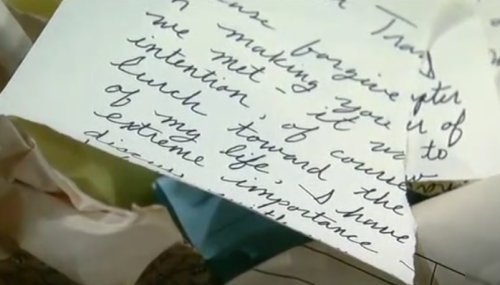 ease forgive pter
making you r of
we met - it was to
intention, of course
lurch toward the
of my life, I have
extreme importance -